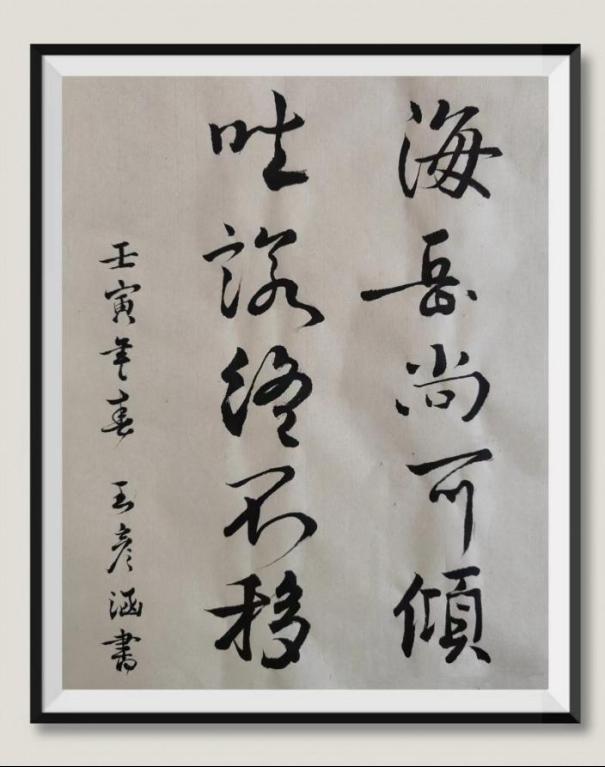 海岳尚可傾
吐諾终不移
壬寅年春 玉彦涵書